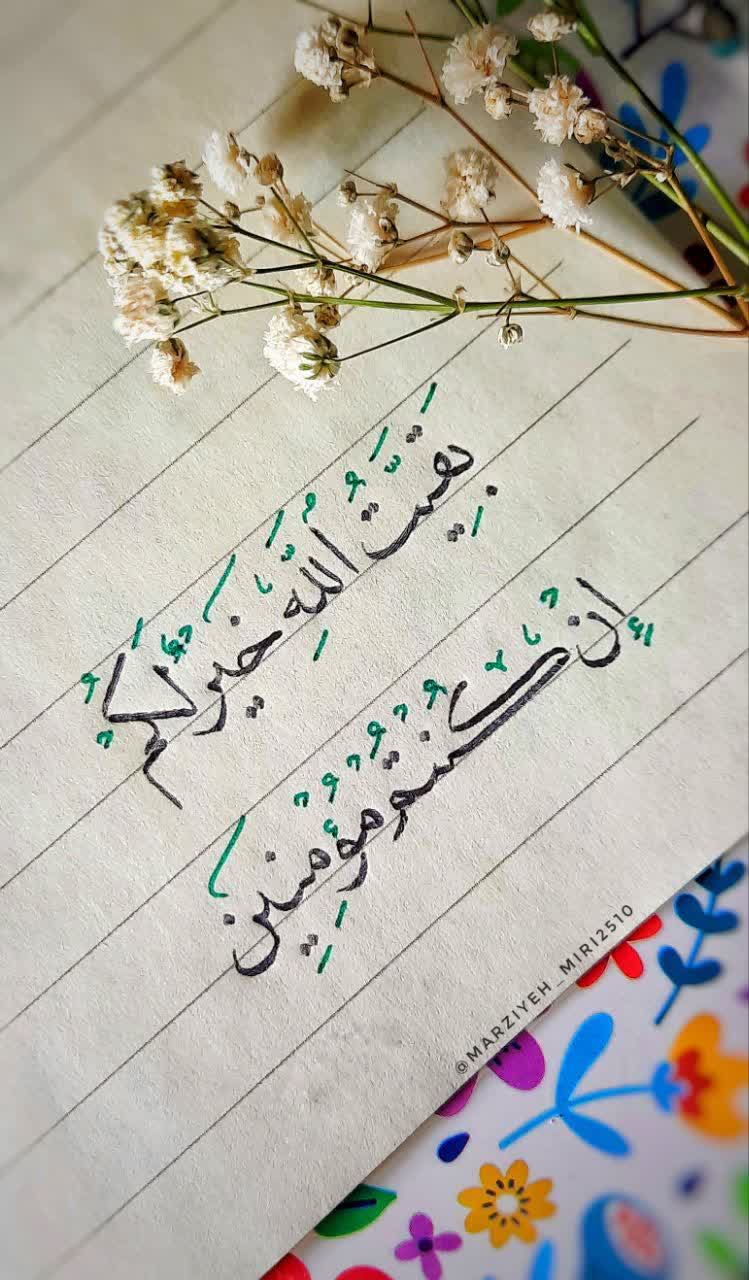 بَقِیَّتُ اللّٰهِ خَیْرٌ لَكُمْ
اِنْ كُنْتُمْ مُؤْمِنِینَ
@MARZIYEH_MIRI2510